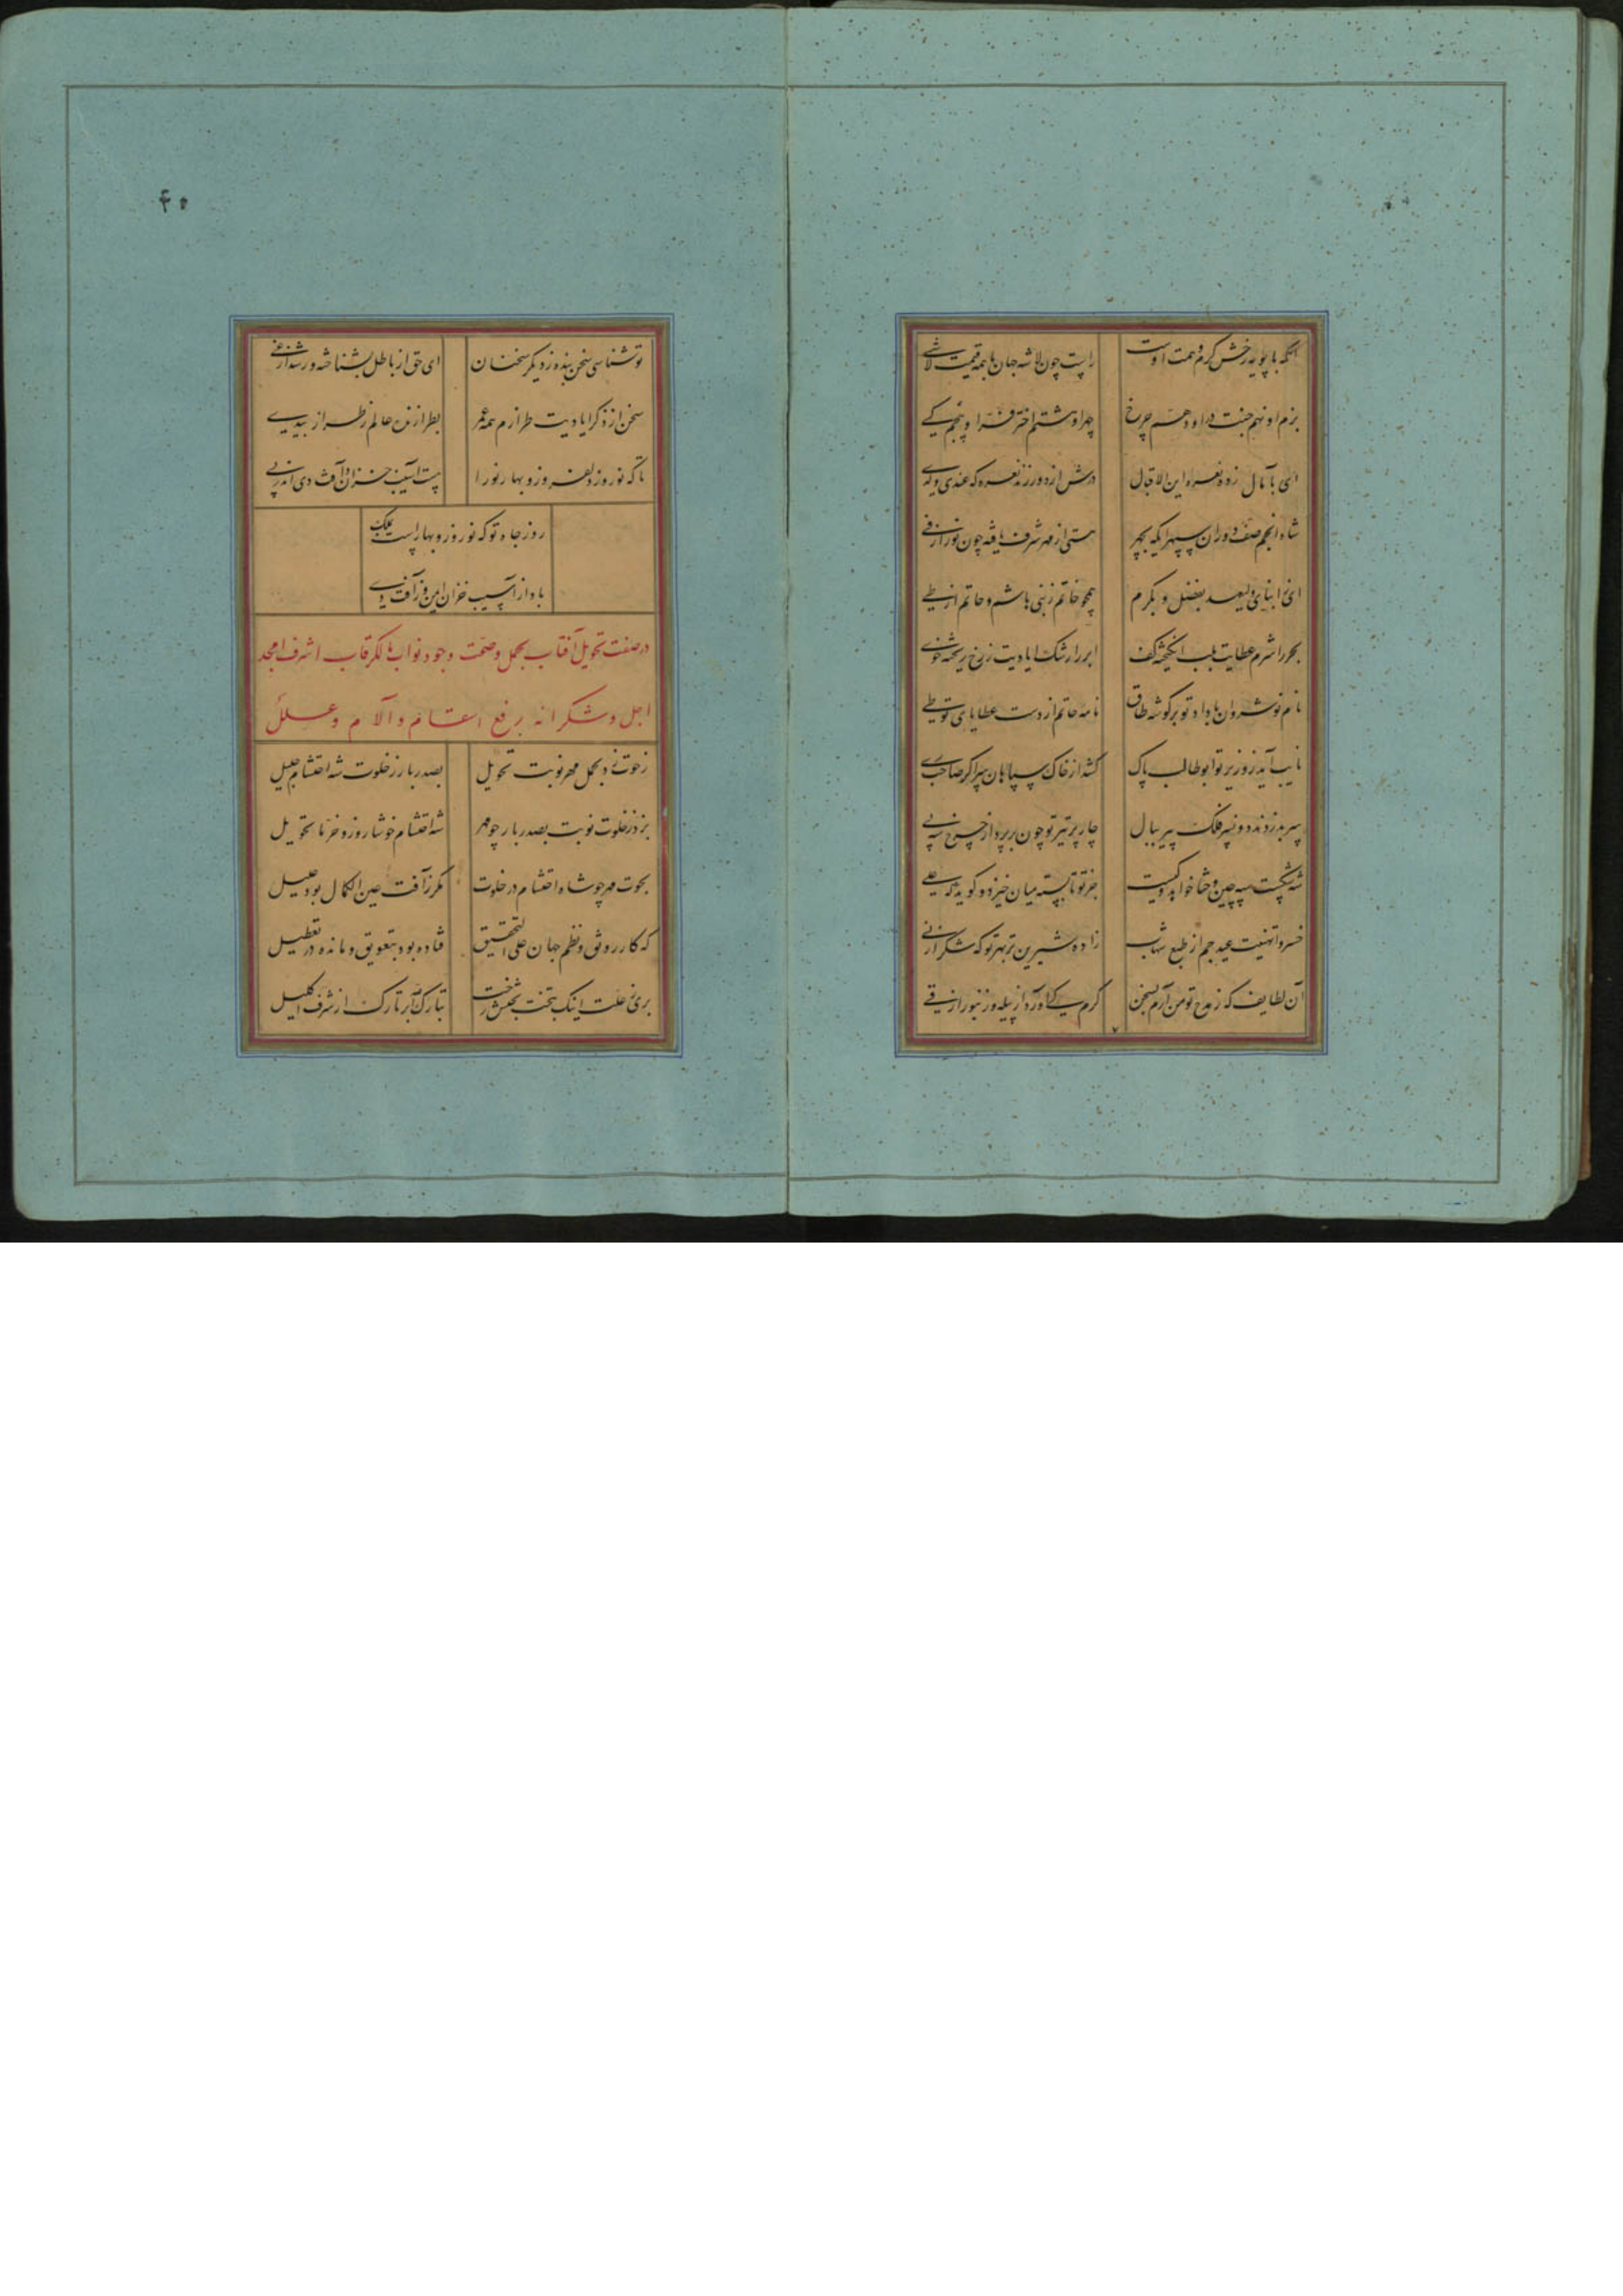 آنکه با پویه رخش کرم و همت اوست
راست چون لاشه جهان با همه قیمت لاشی
بزم او نهم جنت در او دهم چرخ
چهر او هشتم اختر فر او پنجم کی
ای بآمال زده نعره این الاقبال
شاه انجم صف دوران سپهر ایکه بچهر
هستی از مهر شرف یافته چون نور از فی
ای ز ابنای ولیعهد بفضل و بکرم
همچو خاتم ز بنی هاشم و حاتم از طی
بحر را شرم عطایت بلب انگیخته کف
ابر را رشک ایادیت ز رخ ریخته خوی
نام نوشروان با داد تو بر گوشه طاق
نامه حاتم از دست عطایای تو طی
نایب آید ز وزیر تو ابوطالب پاک
کشد از خاک سپاهان سر اگر صاحب ری
سپر بدر ندرد دو نسر فلک پیر ببال
چار پر تیر تو چون بر پرد از چرخ سه پی
جز تو نابسته میان خیزد و گوید که علی
خسروا تهنیت عید جم از طبع شهاب
زاده شیرین تر بهر تو که شکر از نی
آن لطایف که ز مدح تو من آرم بسخن
کرم کی آورد از پیله و زنبور از قی
تو شناسی سخن بنده ز دیگر سخنان
ای حق از باطل بشناخته و رشد از غی
سخن از ذکر ایادیت طرازم همه عمر
تا که نوروز دلفروز و بهار نو را
هست آسیب خزان و آفت دی اندر پی
روز جاه تو که نوروز و بهار است بملک
باد از آسیب خزان ایمن وز آفت دی
در صفت تحویل آفتاب بحمل و صحت وجود نواب مالک رقاب اشرف امجد
اجل و شکرانه برفع اسقام و آلام و علل
ز حوت زد بحمل مهر نوبت تحویل
بصدر بار ز خلوت شه احتشام جلیل
بزد ز خلوت نوبت بصدر بار چو مهر
شه احتشام خوشا روز و خرما تحویل
بحوت مهر چو شاه احتشام در خلوت
مگر ز آفت عین الکمال بود علیل
که کار رونق و نظم جهان علی التحقیق
فتاده بود بتعویق و مانده در تعطیل
بری ز علت اینک بتخت بخشش رخت
تبارک بر تارک از شرف اکلیل